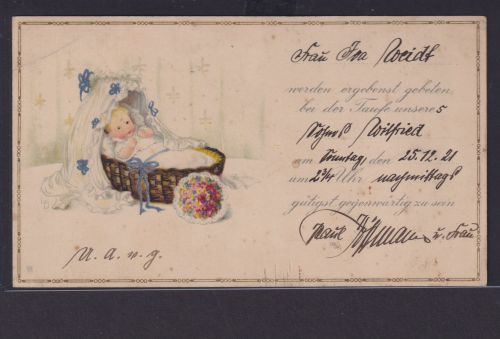 Frau Iva Weidt
werden ergebenst gebeten,
bei der Taufe unseres
Sohnes Wilfried
am Sonntag, den 25.12.21
um 2¾ Uhr nachmittags
gütigst gegenwärtig zu sein
Paul u. Frau
U. A. w. g.